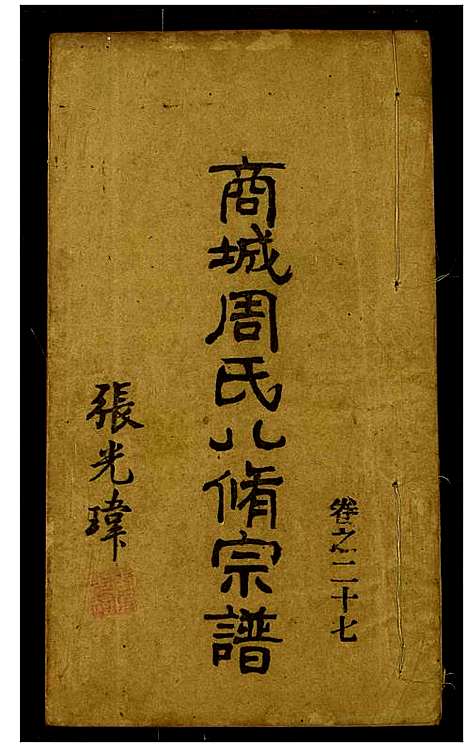 卷之二十七
商城周氏八脩宗譜
張光瑋